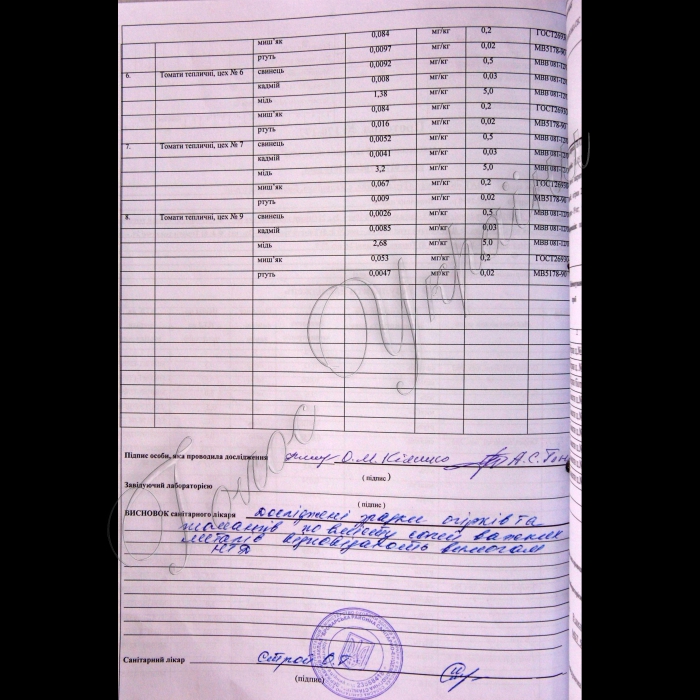 миш'як 0,084 мг/кг 0,2 ГОСТ26930
ртуть 0,0097 мг/кг 0,02 МВ5178-90
6. Томати тепличні, цех № 6 свинець 0,0092 мг/кг 0,5 МВВ 081-12/0
кадмій 0,008 мг/кг 0,03 МВВ 081-12/0
мідь 1,38 мг/кг 5,0 МВВ 081-12/0
миш'як 0,084 мг/кг 0,2 ГОСТ26930
ртуть 0,016 мг/кг 0,02 МВ5178-90
7. Томати тепличні, цех № 7 свинець 0,0052 мг/кг 0,5 МВВ 081-12/0
кадмій 0,0041 мг/кг 0,03 МВВ 081-12/0
мідь 3,2 мг/кг 5,0 МВВ 081-12/0
миш'як 0,067 мг/кг 0,2 ГОСТ26930
ртуть 0,009 мг/кг 0,02 МВ5178-90
8. Томати тепличні, цех № 9 свинець 0,0026 мг/кг 0,5 МВВ 081-12/0
кадмій 0,0085 мг/кг 0,03 МВВ 081-12/0
мідь 2,68 мг/кг 5,0 МВВ 081-12/0
миш'як 0,053 мг/кг 0,2 ГОСТ26930
ртуть 0,0047 мг/кг 0,02 МВ5178-90
Голос України
Підпис особи, яка проводила дослідження О.М. А.С.
( підпис )
Завідуючий лабораторією
( підпис )
ВИСНОВОК санітарного лікаря досліджені зразки огірків та
томатів по вмісту солей важких
металів відповідають вимогам
НТД
Санітарний лікар Строй О.Г.
(підпис)